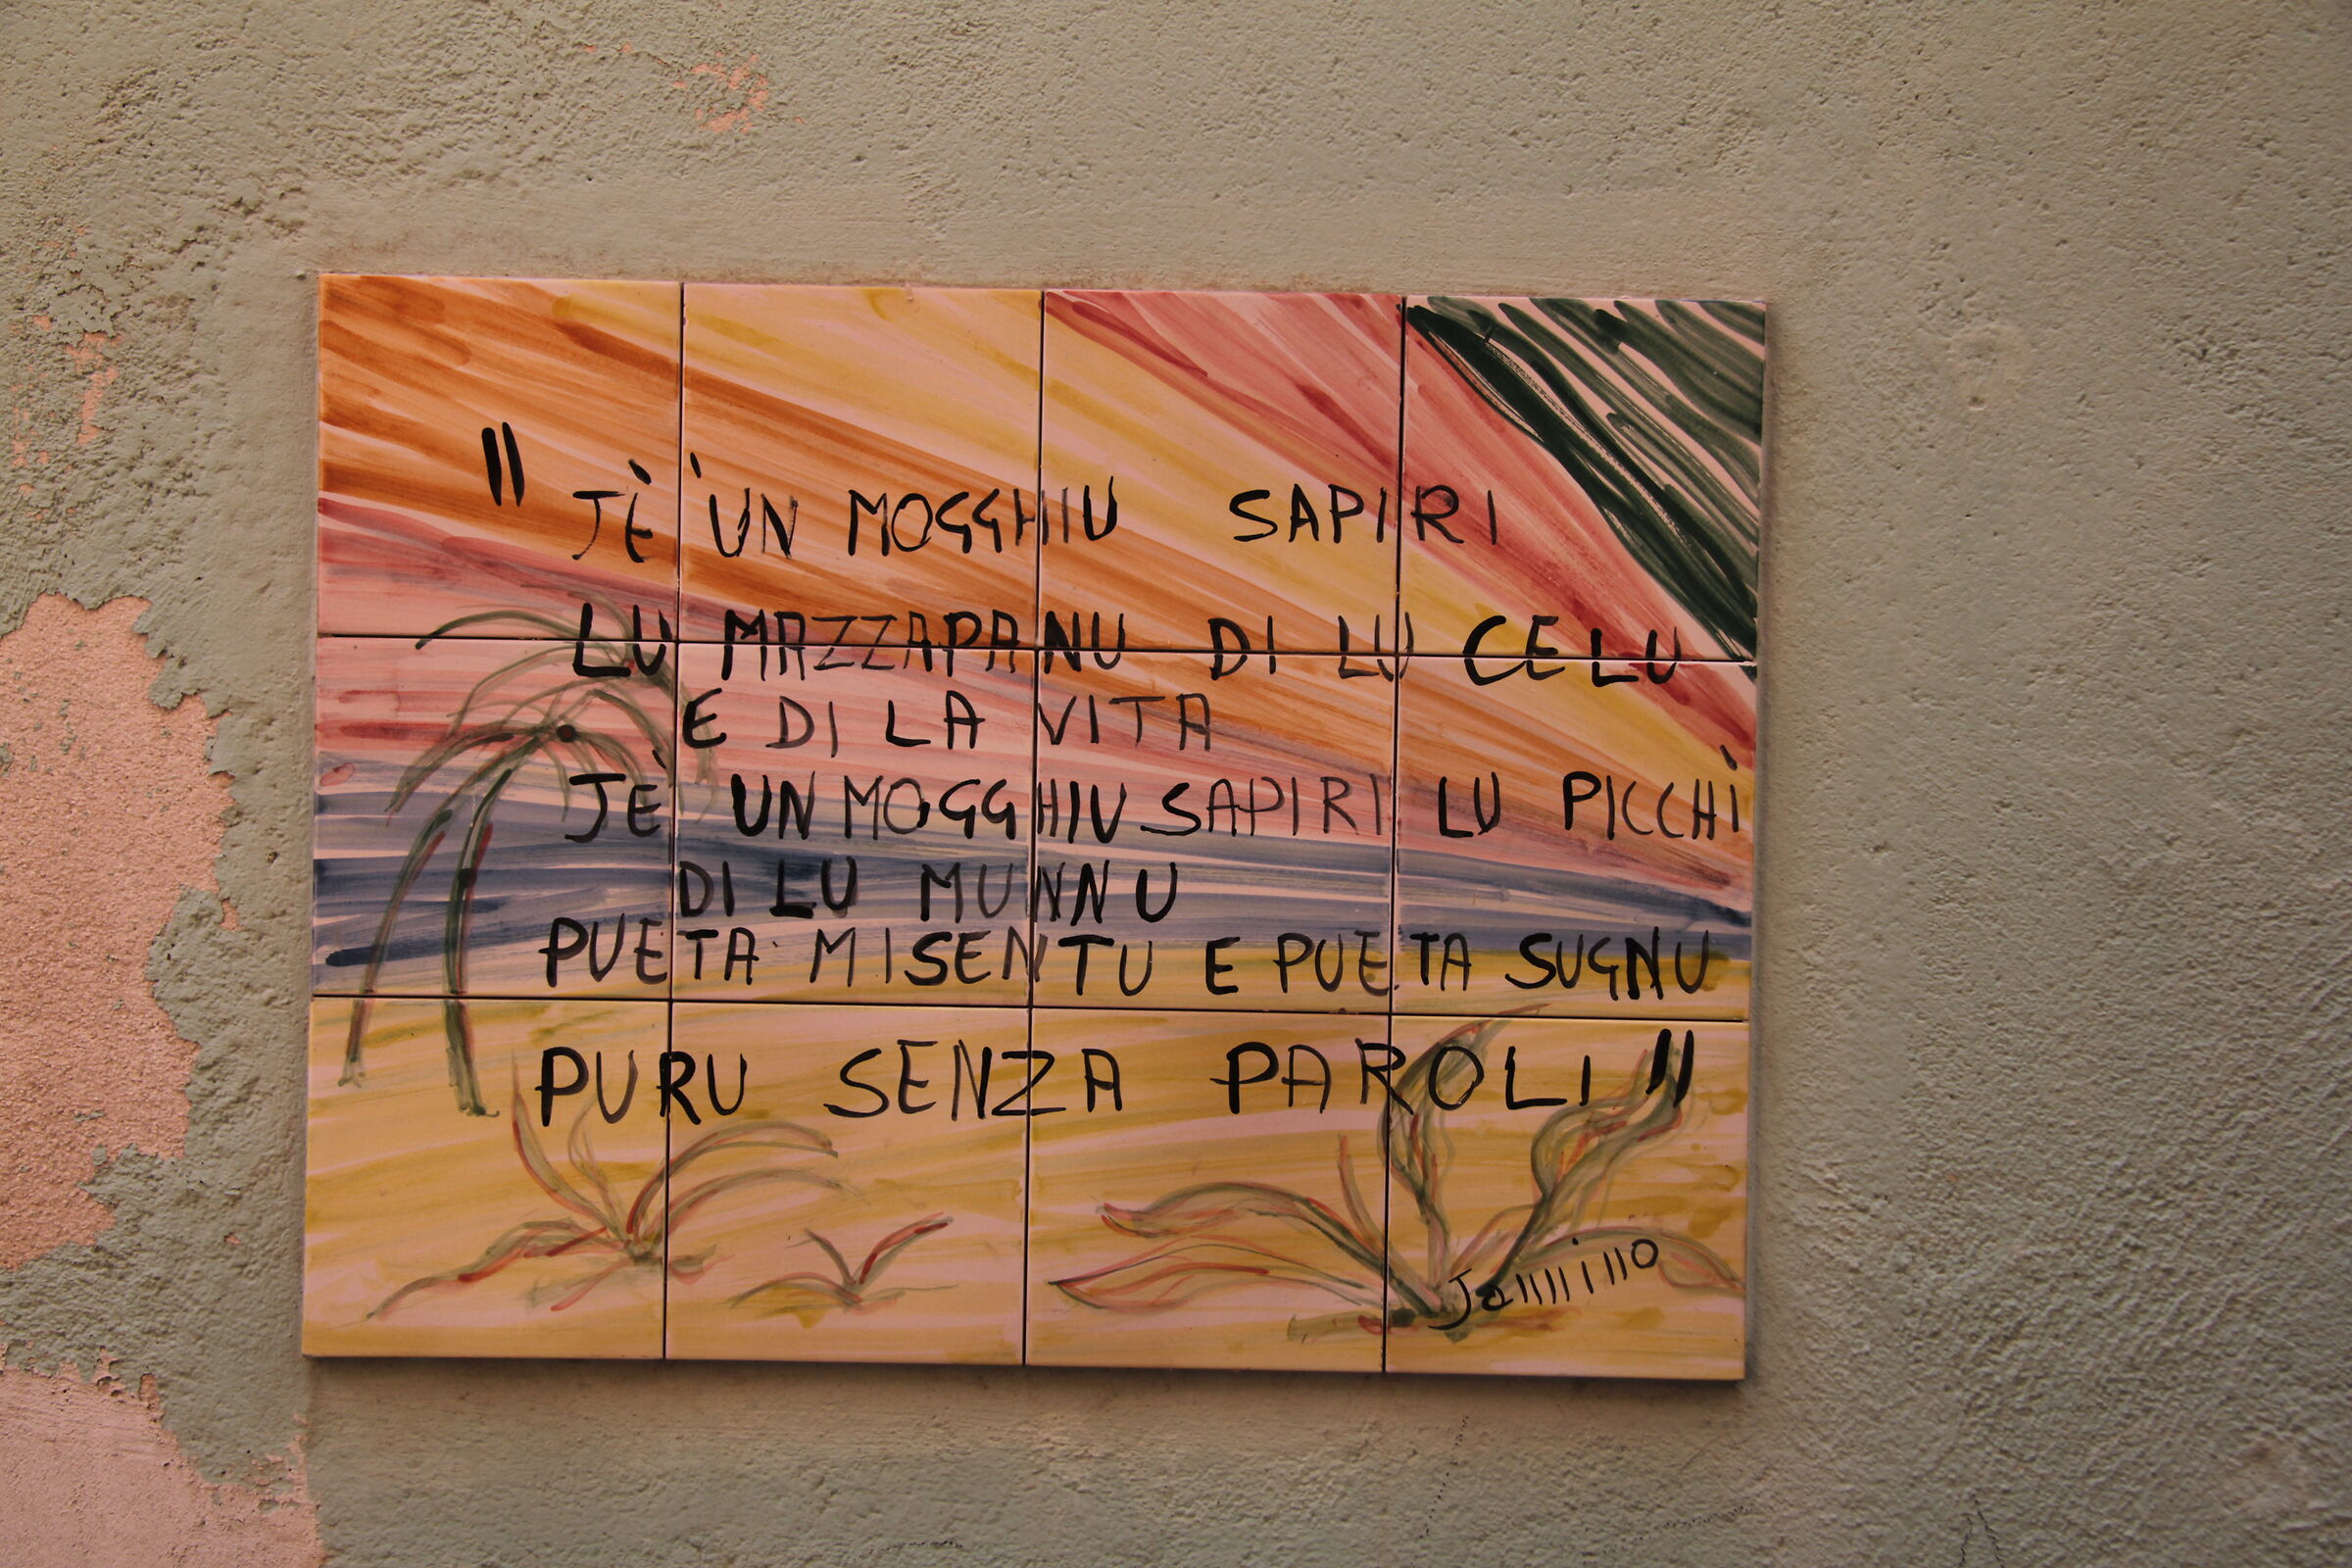 "JÈ 'UN MOGGHIU SAPIRI
LU MAZZAPANU DI LU CELU
E DI LA VITA
JÈ UN MOGGHIU SAPIRI LU PICCHÌ
DI LU MUNNU
PUETA MISENTU E PUETA SUGNU
PURU SENZA PAROLI"